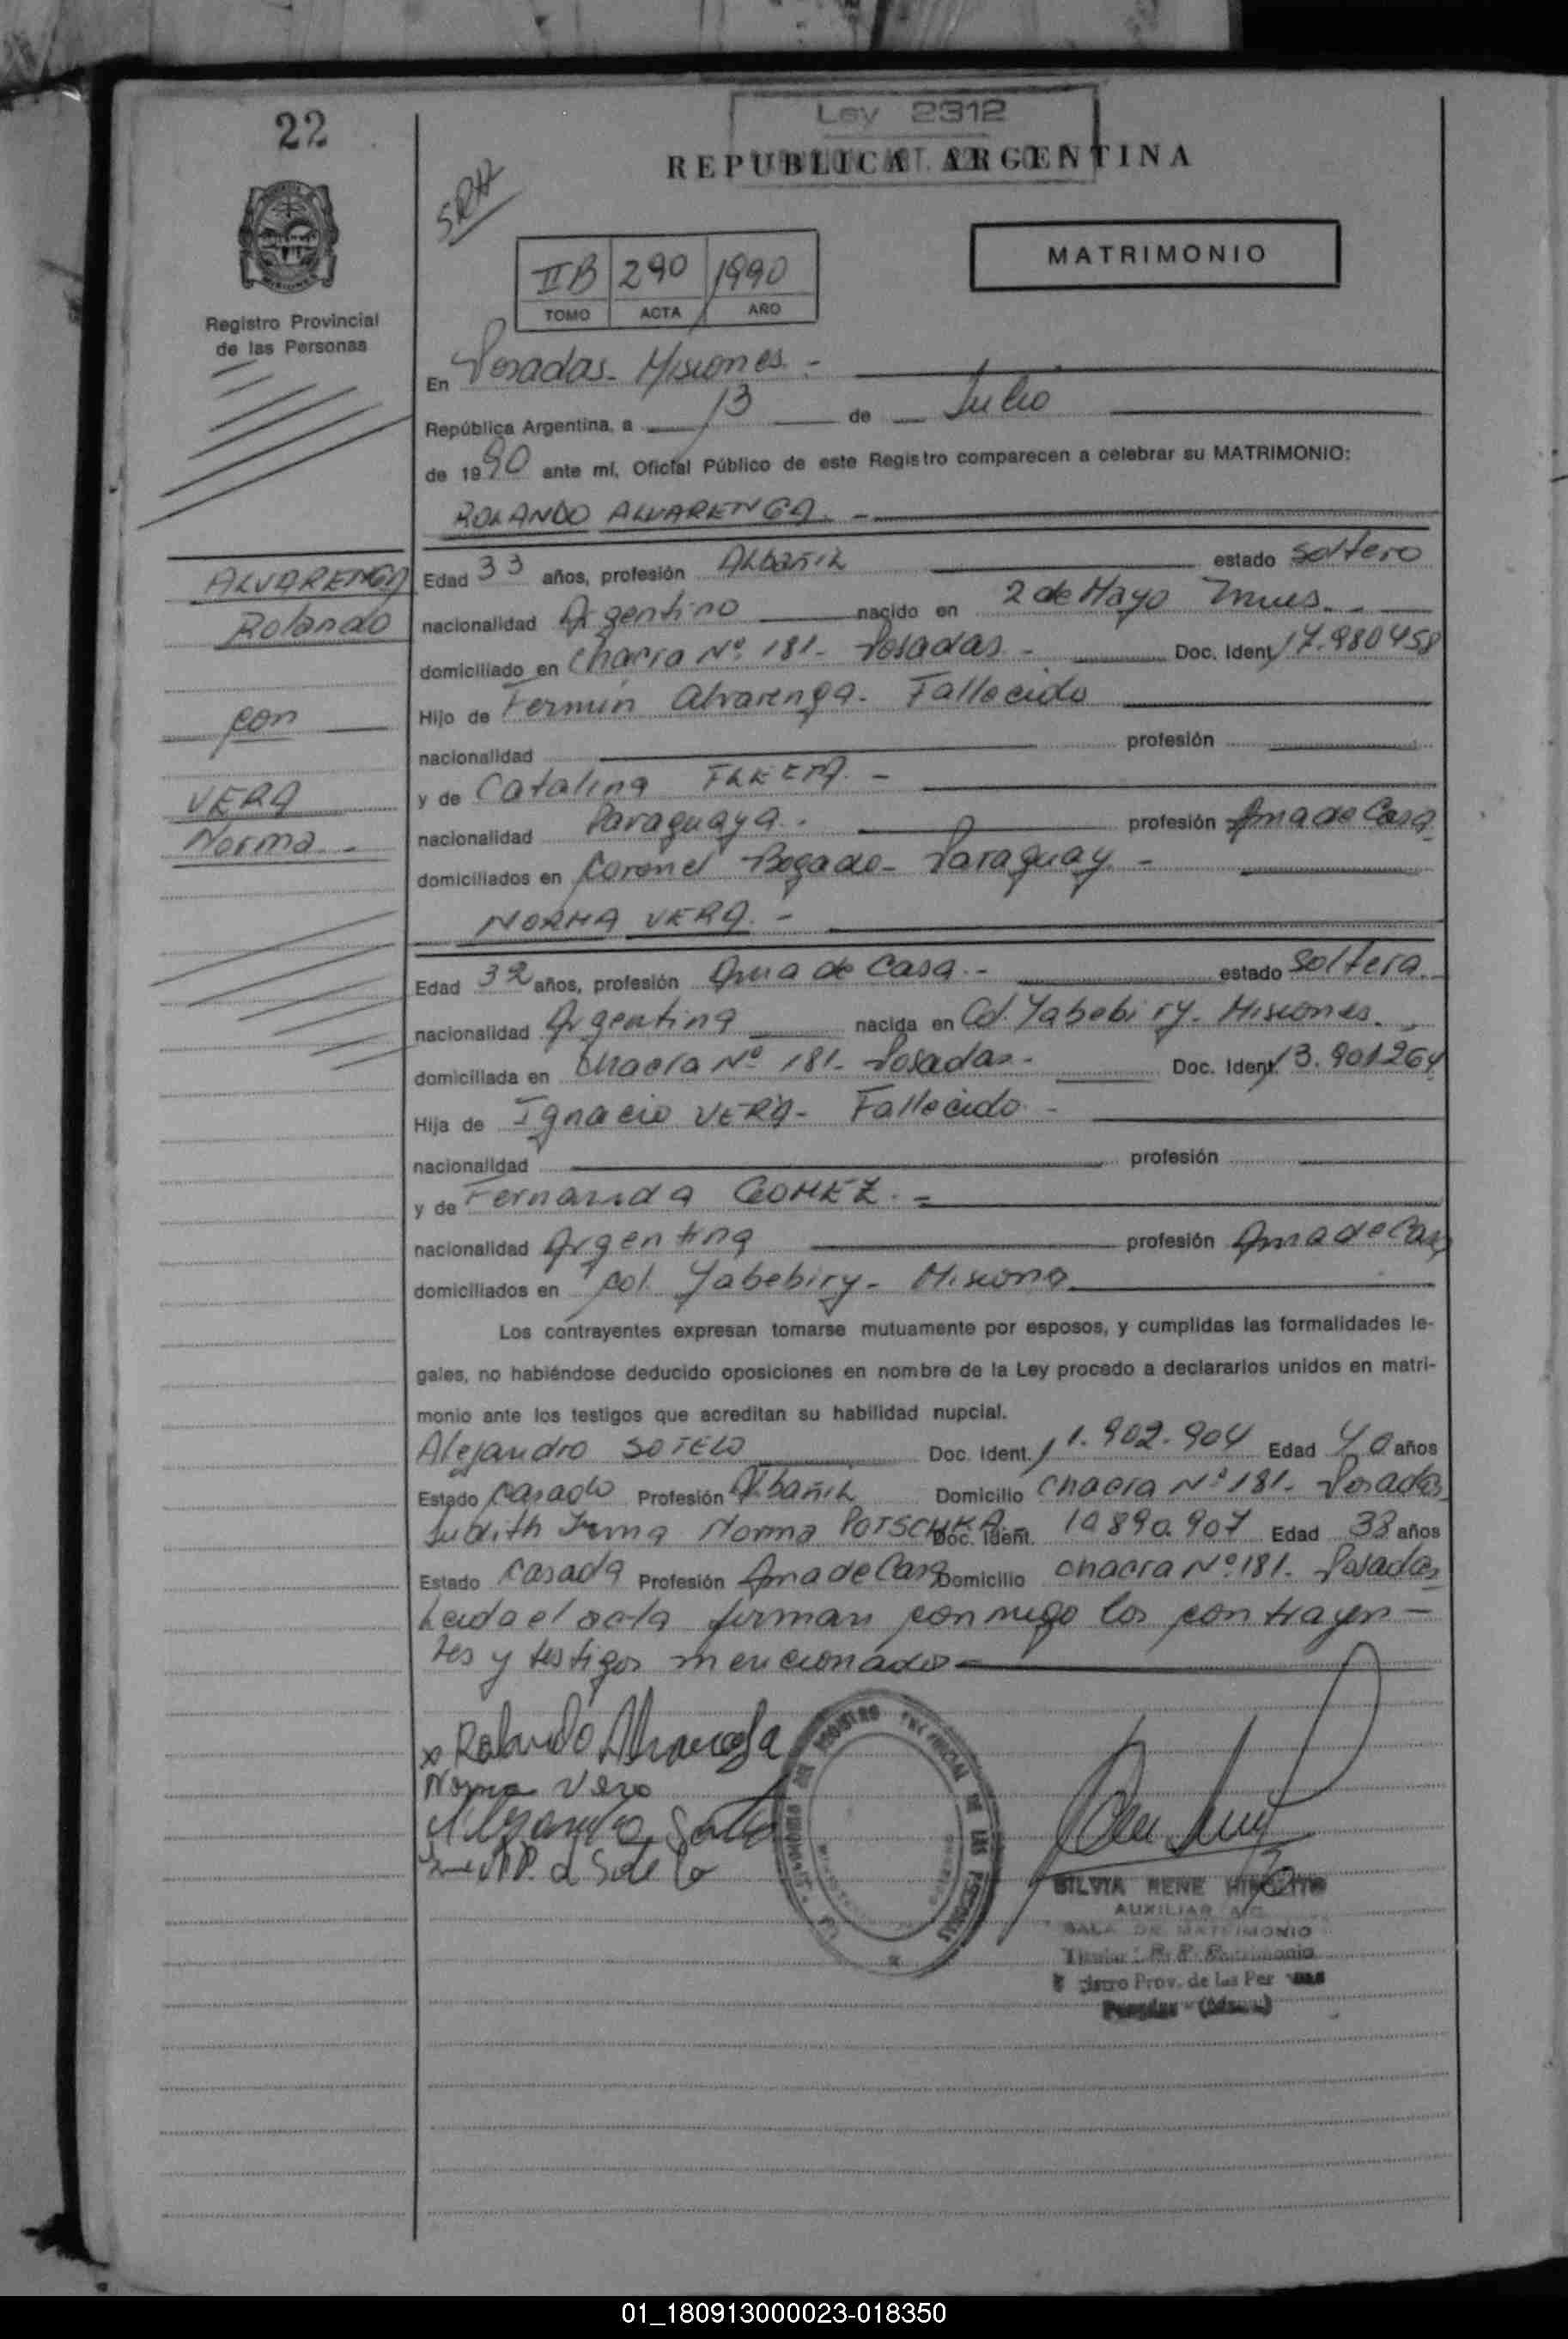 22
Ley 2312
REPUBLICA ARGENTINA
SRH
MATRIMONIO
IIB 290 1990
TOMO ACTA AÑO
Registro Provincial
de las Personas
En Posadas - Misiones. -
República Argentina, a 13 de Julio
de 1990 ante mí, Oficial Público de este Registro comparecen a celebrar su MATRIMONIO:
ROLANDO ALVARENGA. -
ALVARENGA
Rolando
con
VERA
Norma. -
Edad 33 años, profesión Albañil estado soltero
nacionalidad Argentino nacido en 2 de Mayo
domiciliado en Chacra Nº 181 - Posadas - Doc. Ident. 17.980458
Hijo de Fermin Alvarenga - Fallecido
nacionalidad profesión
y de Catalina
nacionalidad Paraguaya. profesión Ama de Casa
domiciliados en Coronel Bogado - Paraguay -
NORMA VERA. -
Edad 32 años, profesión Ama de Casa. - estado Soltera.
nacionalidad Argentina nacida en Col. Yabebiry - Misiones.
domiciliada en Chacra Nº 181 - Posadas - Doc. Ident. 13.901264
Hija de Ignacio VERA - Fallecido -
nacionalidad profesión
y de Fernanda GOMEZ. -
nacionalidad Argentina profesión Ama de Casa
domiciliados en Col. Yabebiry - Misiones
Los contrayentes expresan tomarse mutuamente por esposos, y cumplidas las formalidades le-
gales, no habiéndose deducido oposiciones en nombre de la Ley procedo a declararlos unidos en matri-
monio ante los testigos que acreditan su habilidad nupcial.
Alejandro SOTELO Doc. Ident. 11.902.904 Edad 40 años
Estado Casado Profesión Albañil Domicilio Chacra Nº 181 - Posadas
Judith Irma Norma POTSCHKA - Doc. Ident. 10890.907 Edad 38 años
Estado Casada Profesión Ama de Casa Domicilio Chacra Nº 181 - Posadas
Leida el acta firman conmigo los contrayen-
tes y testigos mencionados -
x Rolando Alvarenga
Norma Vera
Alejandro Sotelo
SILVIA RENE
AUXILIAR A/C
SALA DE MATRIMONIO
Prov. de las Per
01_180913000023-018350